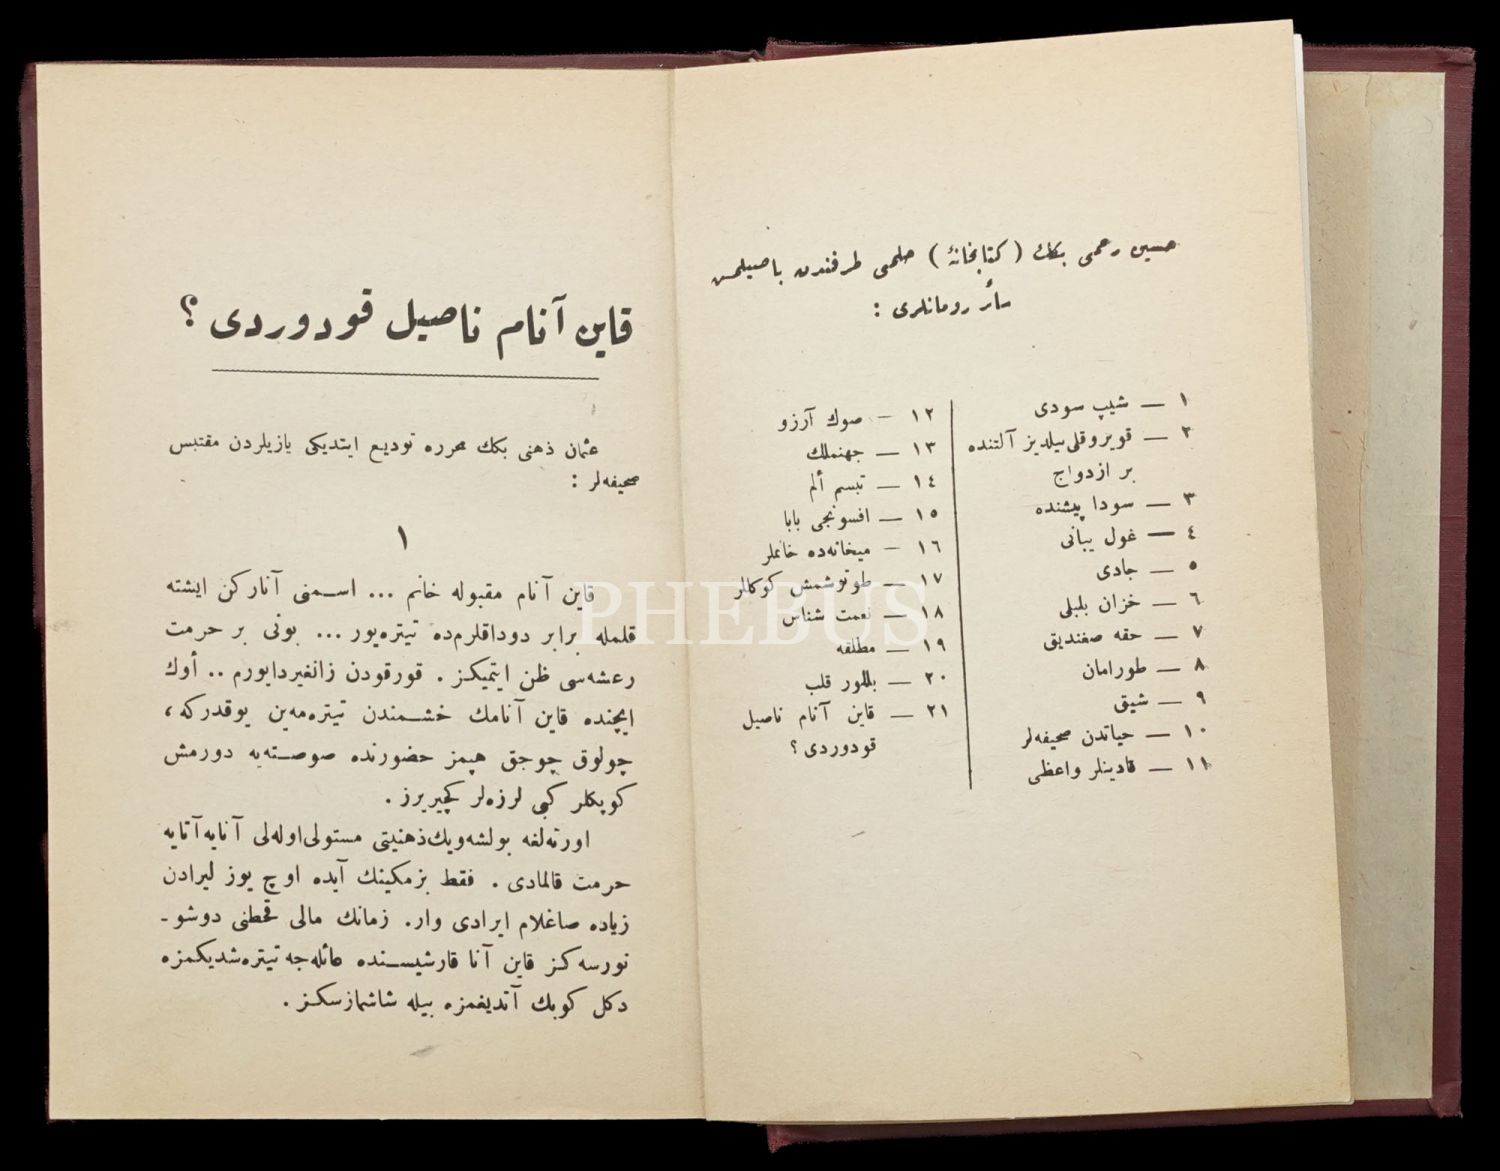 حسین رحمی بكك (كتابخانهٔ) حلمی طرفندن باصیلمش
سائر رومانلری :
١ — شیپ سودی
٢ — قویروقلی ییلدیز آلتنده
بر ازدواج
٣ — سودا پیشنده
٤ — غول یبانی
٥ — جادی
٦ — خزان بلبلی
٧ — حقه صغندیق
٨ — طورامان
٩ — شیق
١٠ — حیاتدن صحیفه‌لر
١١ — قادینلر واعظی
١٢ — صوك آرزو
١٣ — جهنملك
١٤ — تبسم ألم
١٥ — افسونجی بابا
١٦ — میخانه‌ده خانملر
١٧ — طوتوشمش كوكللر
١٨ — نعمت شناس
١٩ — مطلقه
٢٠ — بللور قلب
٢١ — قاین آنام ناصیل
قودوردی ؟
قاین آنام ناصیل قودوردی ؟
عثمان ذهنی بكك محرره تودیع ایتدیكی یازیلردن مقتبس
صحیفه‌لر :
١
قاین آنام مقبوله خانم ... اسمنی آناركن ایشته
قلمله برابر دوداقلرم‌ده تیتره‌یور ... بونی بر حرمت
رعشه‌سی ظن ایتمیكز . قورقودن زانغیردایورم .. أوك
ایچنده قاین آنامك خشمندن تیتره‌مه‌ین یوقدركه ،
چولوق چوجق هپمز حضورنده صوصته‌یه دورمش
كوپكلر كبی لرزه‌لر كچیریرز .
اورته‌لغه بولشه‌ویك ذهنیتی مستولی اوله‌لی آنایه آتایه
حرمت قالمادی . فقط بزمكینك آیده اوچ یوز لیرادن
زیاده صاغلام ایرادی وار . زمانك مالی قحطنی دوشو-
نورسه‌كز قاین آنا قارشیسنده عائله‌جه تیتره‌شدیكمزه
دكل كوبك آتدیغمزه بیله شاشمازسكز .
PHEBUS